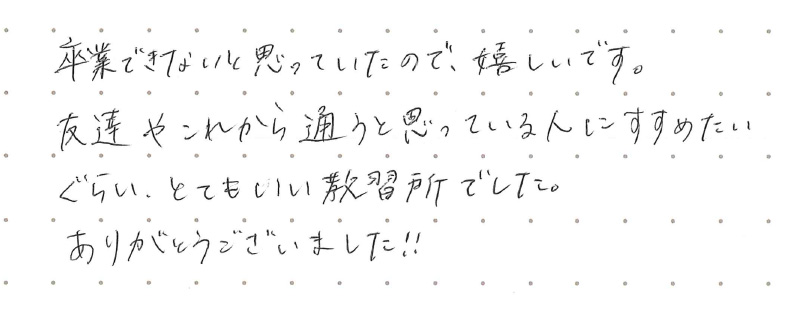 卒業できないと思っていたので、嬉しいです。
友達やこれから通うと思っている人にすすめたい
ぐらい、とてもいい教習所でした。
ありがとうございました!!